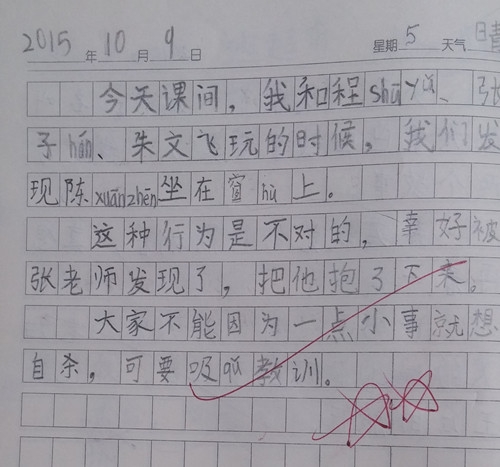 2015年10月9日 星期5 天气晴
今天课间，我和程shūyǔ、张
子hán、朱文飞玩的时候，我们发
现陈xuānzhēn坐在窗hù上。
这种行为是不对的，幸好被
张老师发现了，把他抱了下来。
大家不能因为一点小事就想
自杀，可要吸qǔ教训。